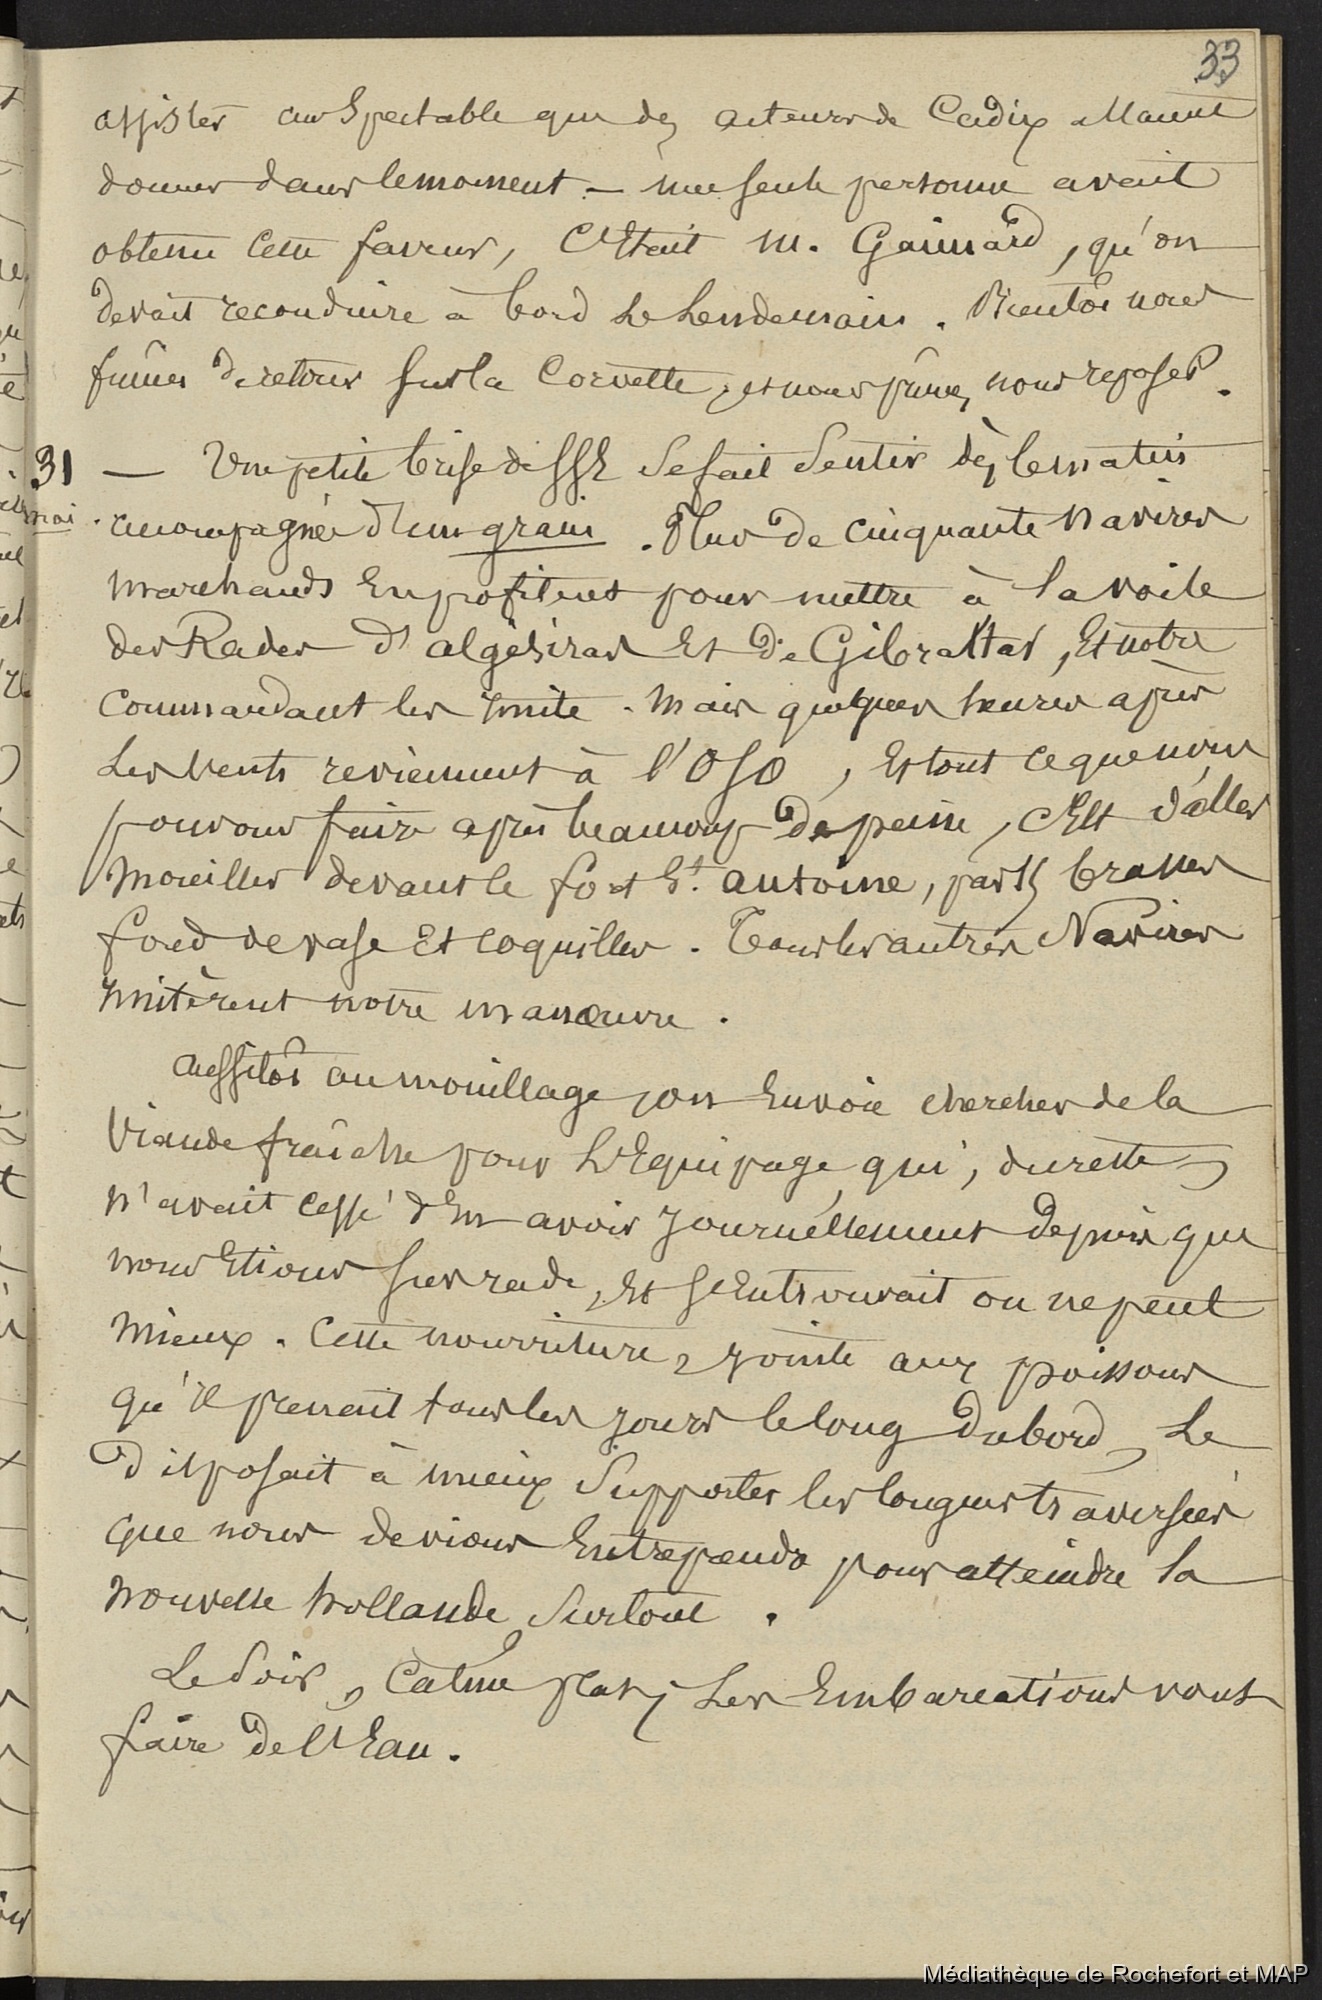 33
assister au Spectable que des acteurs de Cadix
donner dans le moment — une seule personne avait
obtenu cette faveur, C'Etait M. Gaimard, qu'on
devait reconduire à bord le lendemain. Bientôt nous
fûmes de retour sur la Corvette, et nous pûmes nous reposer.
31 — Une petite brise de SSE Se fait Sentir dès le matin
mai accompagnée d'un grain. Plus de cinquante navires
Marchands En profitent pour mettre à la voile
des Rades d'algésiras Et de Gibraltar, Et notre
Commandant les ymite. Mais quelques heures après
Les Vents reviennent à l'OSO, Et tout ce que nous
pouvons faire après beaucoup de peine, c'Est d'aller
Mouiller devant le fort St. antoine, par brasses
fond de vase Et coquilles. Tous les autres Navires
ymitèrent notre manœuvre.
Aussitôt au mouillage, on Envoie chercher de la
Viande fraîche pour L'Equipage qui, du reste,
n'avait cessé d'En avoir Journellement depuis que
nous Etions Sur rade, Et S'En trouvait on ne peut
Mieux. Cette nourriture, Jointe aux poissons
qu'il prenait tous les jours le long du bord, Le
disposait à mieux Supporter les longues traversées
que nous devions Entreprendre pour atteindre la
Nouvelle hollande Surtout.
Le Soir, Calme plat, Les Embarcations vont
faire de l'Eau.
Médiathèque de Rochefort et MAP